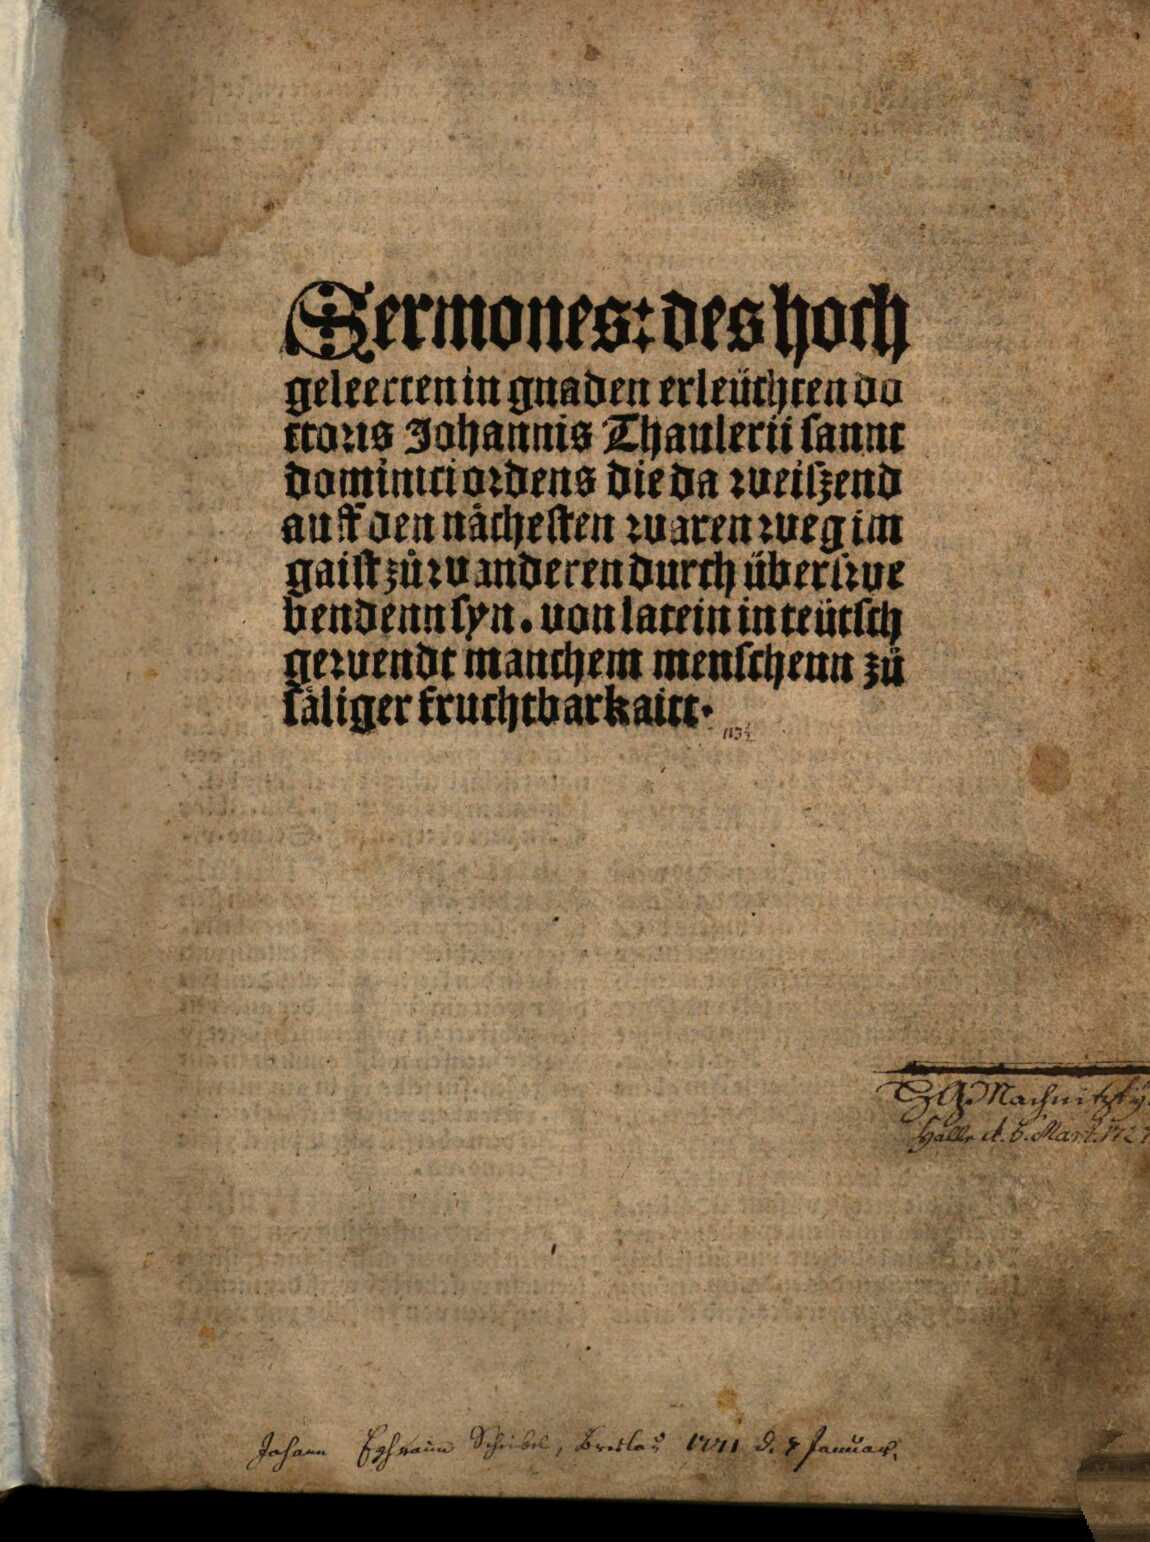 Sermones: des hoch
geleerten in gnaden erleüchten do
ctoris Johannis Thaulerii sannt
dominici ordens die da weiszend
auff den nächesten waren weg im
gaist zů wanderen durch überswe
bendenn syn. von latein in teütsch
gewendt manchem menschenn zů
säliger fruchtbarkaitt.
Machnitzky
Halle d. 6. Mart. 1727
Johann Ephraim Scheibel, Breslau 1771 d. 8 Januar.